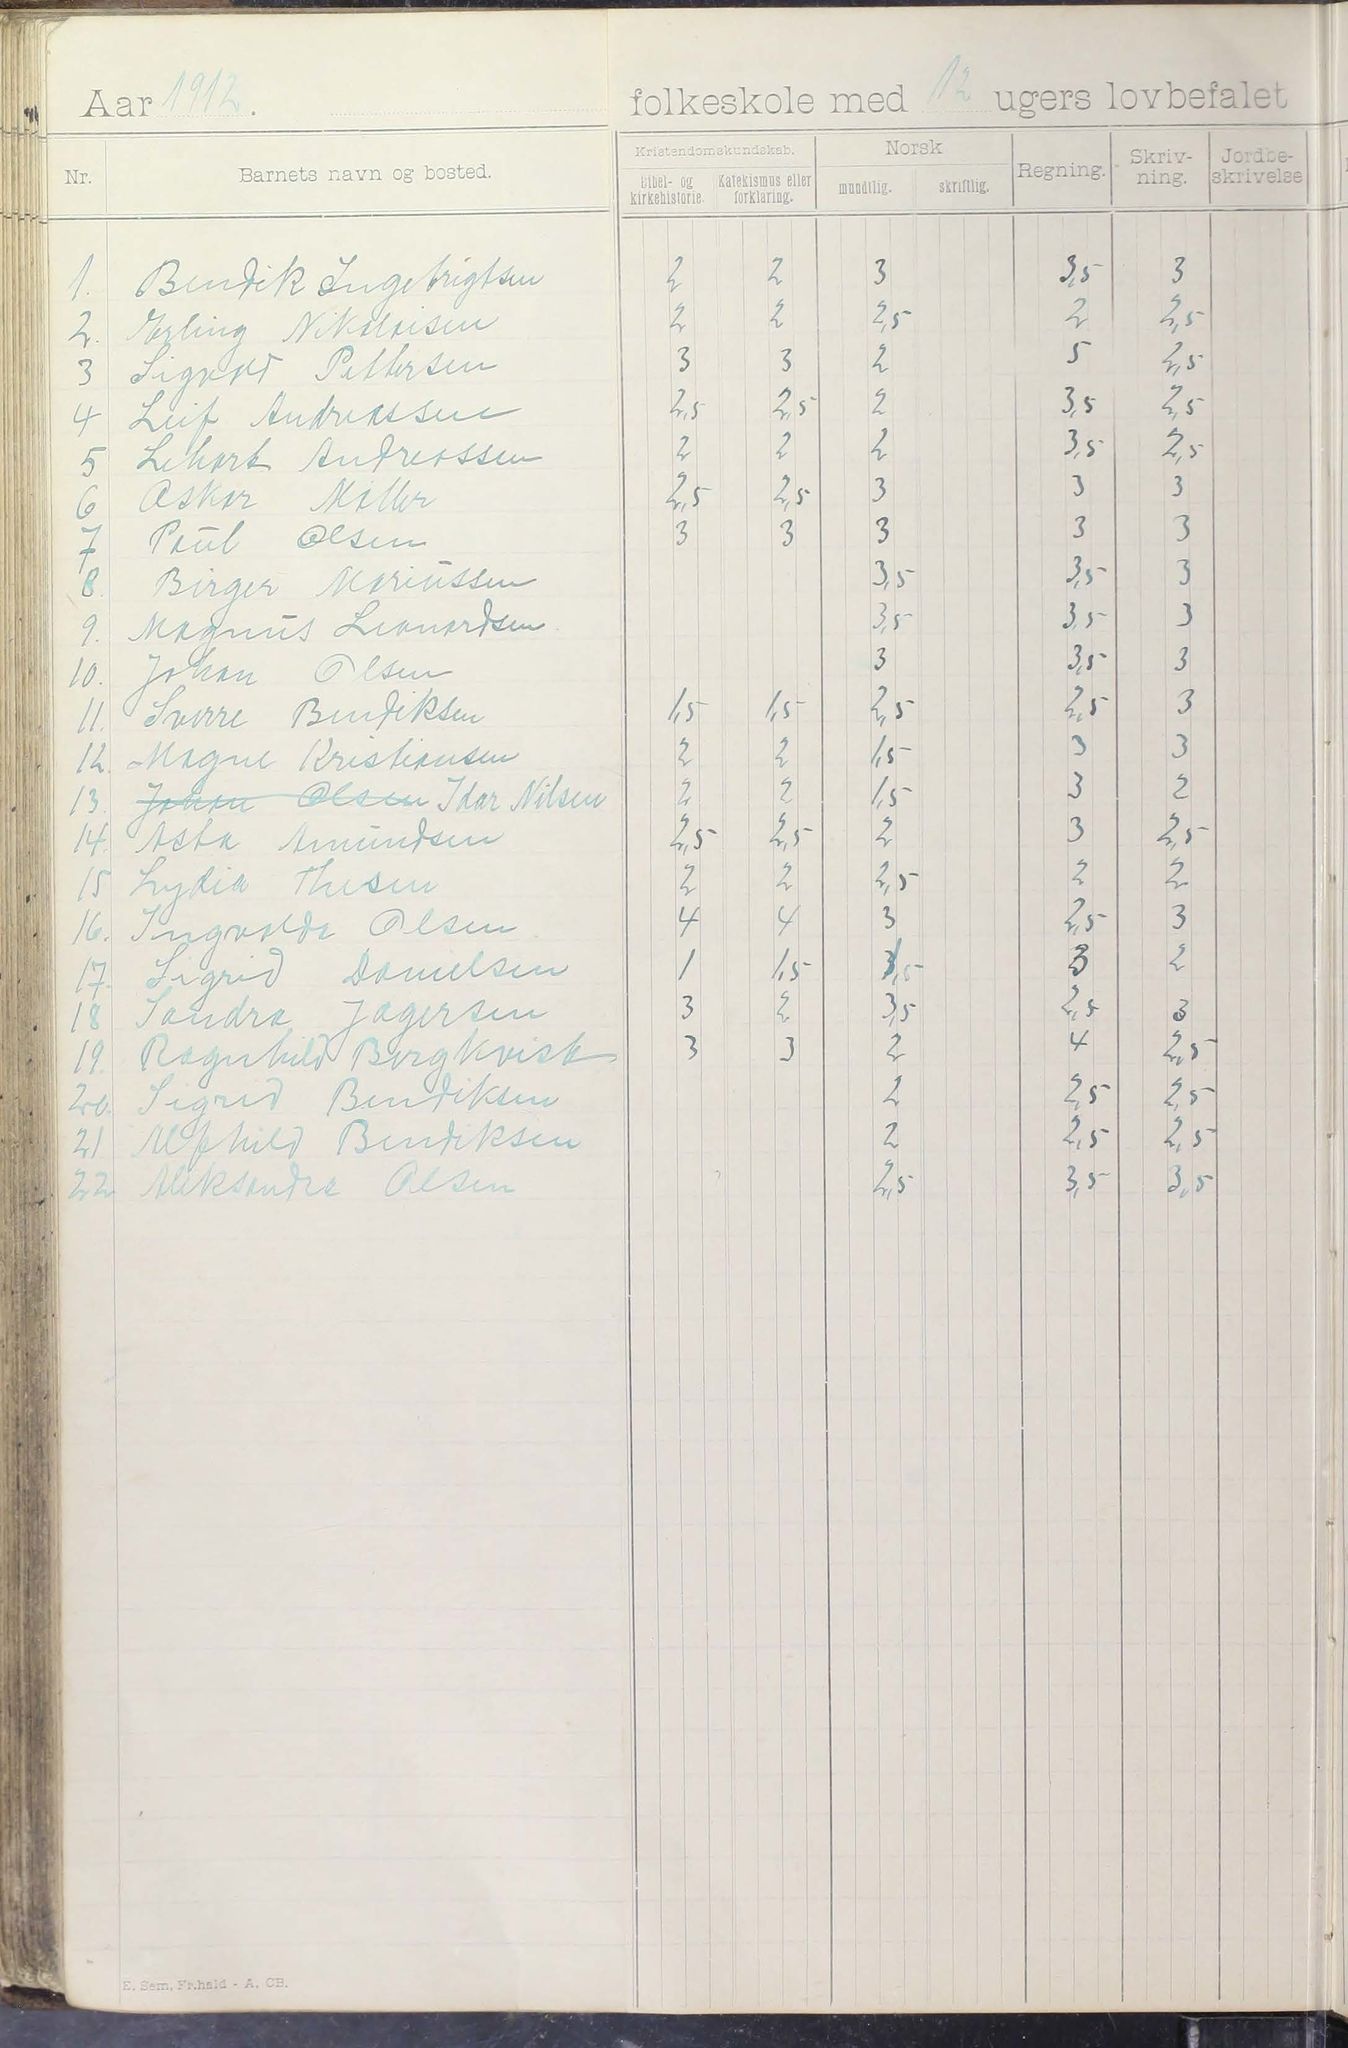 Aar 1912. folkeskole med 12 ugers lovbefalet
Nr. Barnets navn og bosted. Kristendomskundskab. Bibel- og kirkehistorie. Katekismus eller forklaring. Norsk mundtlig. skriftlig. Regning. Skriv-ning. Jordbe-skrivelse
1. Bendik Ingebrigtsen 2 2 3 3,5 3
2. Erling Nikolaisen 2 2 2,5 2 2,5
3 Sigvald Pettersen 3 3 2 5 2,5
4 Leif Andreassen 2,5 2,5 2 3,5 2,5
5 Lehart Andreassen 2 2 2 3,5 2,5
6 Oskar Møller 2,5 2,5 3 3 3
7 Paul Olsen 3 3 3 3 3
8. Birger Mariussen 3,5 3,5 3
9. Magnus Leonardsen 3,5 3,5 3
10. Johan Olsen 3 3,5 3
11. Sverre Bendiksen 1,5 1,5 2,5 2,5 3
12. Magne Kristiansen 2 2 1,5 3 3
13. Johan Olsen Idar Nilsen 2 2 1,5 3 2
14. Asta Amundsen 2,5 2,5 2 3 2,5
15 Lydia Thesen 2 2 2,5 2 2
16. Ingvalda Olsen 4 4 3 2,5 3
17. Sigrid Danielsen 1 1,5 1,5 3 2
18 Sandra Jagersen 3 2 3,5 2,5 3
19. Ragnhild Bergkvist 3 3 2 4 2,5
20. Sigrid Bendiksen 2 2,5 2,5
21 Alfhild Bendiksen 2 2,5 2,5
22 Aleksandra Olsen 2,5 3,5 3,5
E. Sem, Fr.hald - A. CB.